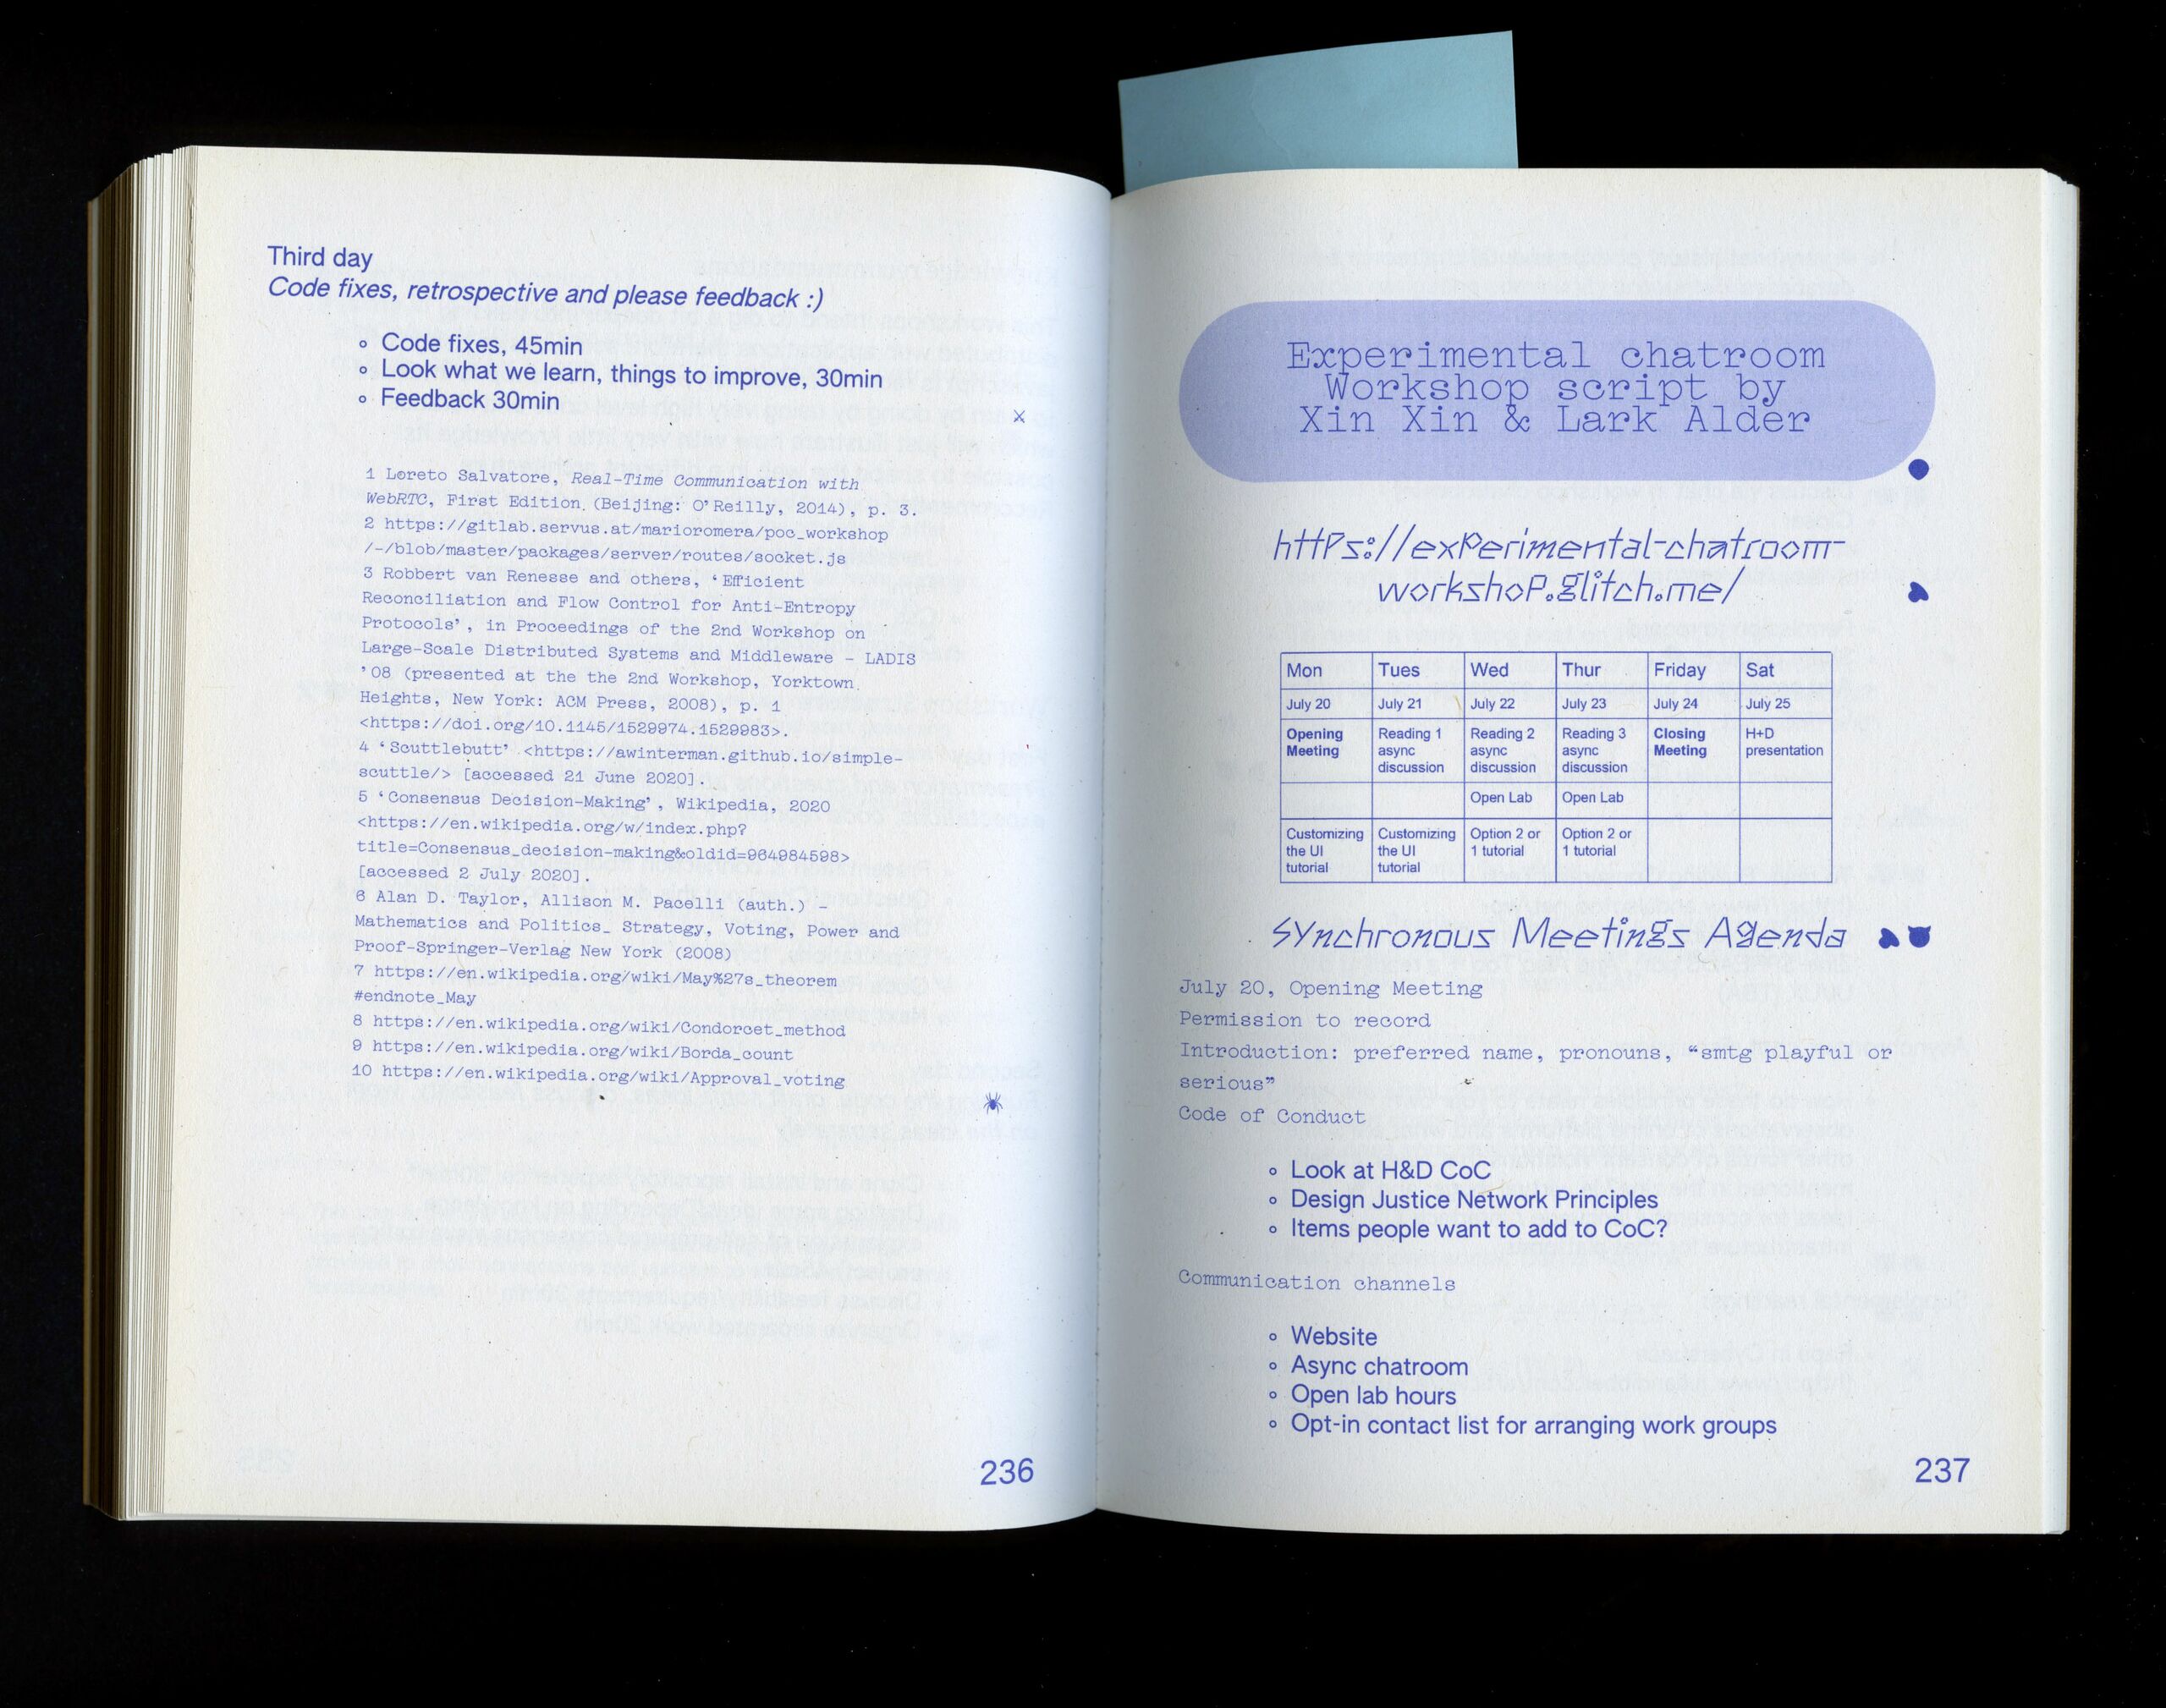 Third day
Code fixes, retrospective and please feedback :)
◦ Code fixes, 45min
◦ Look what we learn, things to improve, 30min
◦ Feedback 30min
1 Loreto Salvatore, Real-Time Communication with
WebRTC, First Edition. (Beijing: O'Reilly, 2014), p. 3.
2 https://gitlab.servus.at/marioromera/poc_workshop
/-/blob/master/packages/server/routes/socket.js
3 Robbert van Renesse and others, ‘Efficient
Reconciliation and Flow Control for Anti-Entropy
Protocols’, in Proceedings of the 2nd Workshop on
Large-Scale Distributed Systems and Middleware - LADIS
’08 (presented at the the 2nd Workshop, Yorktown
Heights, New York: ACM Press, 2008), p. 1
<https://doi.org/10.1145/1529974.1529983>.
4 ‘Scuttlebutt’ <https://awinterman.github.io/simple-
scuttle/> [accessed 21 June 2020].
5 ‘Consensus Decision-Making’, Wikipedia, 2020
<https://en.wikipedia.org/w/index.php?
title=Consensus_decision-making&oldid=964984598>
[accessed 2 July 2020].
6 Alan D. Taylor, Allison M. Pacelli (auth.) -
Mathematics and Politics_ Strategy, Voting, Power and
Proof-Springer-Verlag New York (2008)
7 https://en.wikipedia.org/wiki/May%27s_theorem
#endnote_May
8 https://en.wikipedia.org/wiki/Condorcet_method
9 https://en.wikipedia.org/wiki/Borda_count
10 https://en.wikipedia.org/wiki/Approval_voting
236
Experimental chatroom
Workshop script by
Xin Xin & Lark Alder
https://experimental-chatroom-
workshop.glitch.me/
Mon Tues Wed Thur Friday Sat
July 20 July 21 July 22 July 23 July 24 July 25
Opening Reading 1 Reading 2 Reading 3 Closing H+D
Meeting async async async Meeting presentation
discussion discussion discussion
Open Lab Open Lab
Customizing Customizing Option 2 or Option 2 or
the UI the UI 1 tutorial 1 tutorial
tutorial tutorial
Synchronous Meetings Agenda
July 20, Opening Meeting
Permission to record
Introduction: preferred name, pronouns, “smtg playful or
serious”
Code of Conduct
◦ Look at H&D CoC
◦ Design Justice Network Principles
◦ Items people want to add to CoC?
Communication channels
◦ Website
◦ Async chatroom
◦ Open lab hours
◦ Opt-in contact list for arranging work groups
237